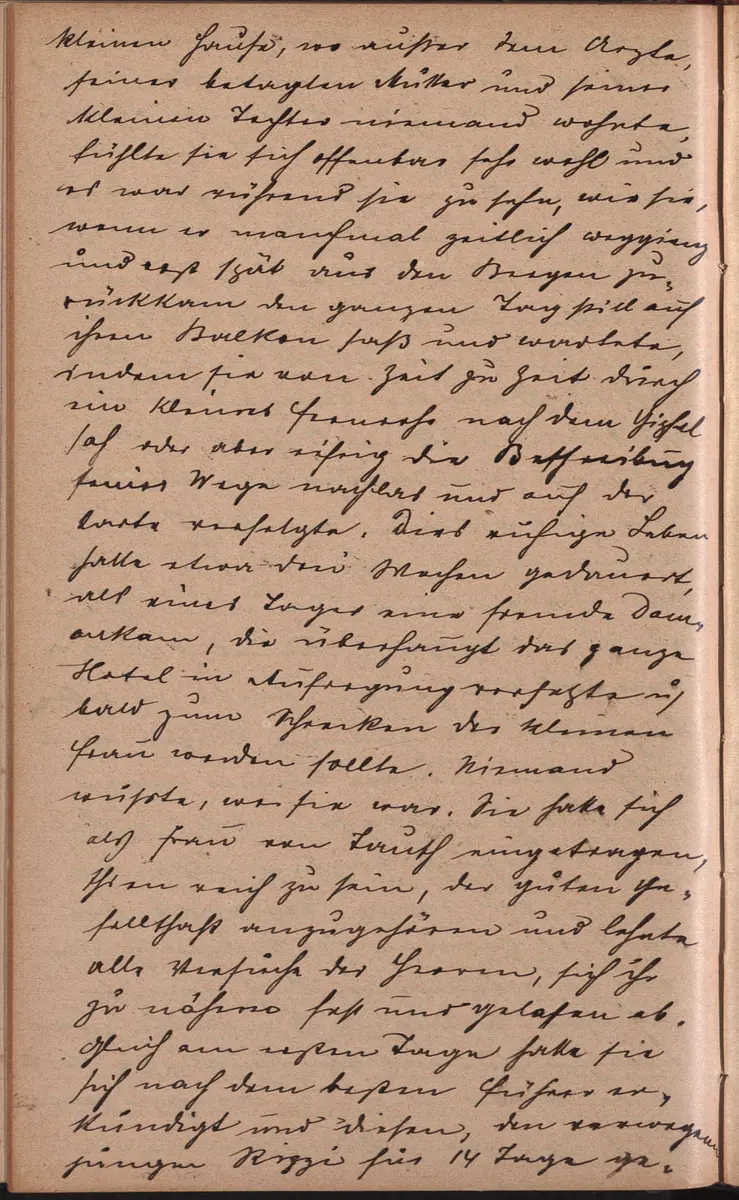 kleinen Hause, wo außer dem Arzte,
seiner betagten Mutter und seiner
kleinen Tochter niemand wohnte,
fühlte sie sich offenbar sehr wohl und
es war rührend sie zu sehn, wie sie,
wenn er manchmal zeitlich weggieng
und erst spät aus den Bergen zu-
rückkam den ganzen Tag still auf
ihrem Balkon saß und wartete,
indem sie von Zeit zu Zeit durch
ein kleines Fernrohr nach dem Gipfel
sah oder aber eifrig die Beschreibung
seines Wege nachlas und auf der
Karte verfolgte. Dies ruhige Leben
hatte etwa drei Wochen gedauert,
als eines Tages eine fremde Dame
ankam, die überhaupt das ganze
Hotel in Aufregung versetzte u
bald zum Schrecken der kleinen
Frau werden sollte. Niemand
wußte, wer sie war. Sie hatte sich
als Frau von Tauth eingetragen,
schien reich zu sein, der guten Ge-
sellschaft anzugehören und lehnte
alle Versuche der Herren, sich ihr
zu nähern fest und gelassen ab.
Gleich am ersten Tage hatte sie
sich nach dem besten Führer er-
kundigt und diesen, den verwegenen
jungen Rizzi für 14 Tage ge-